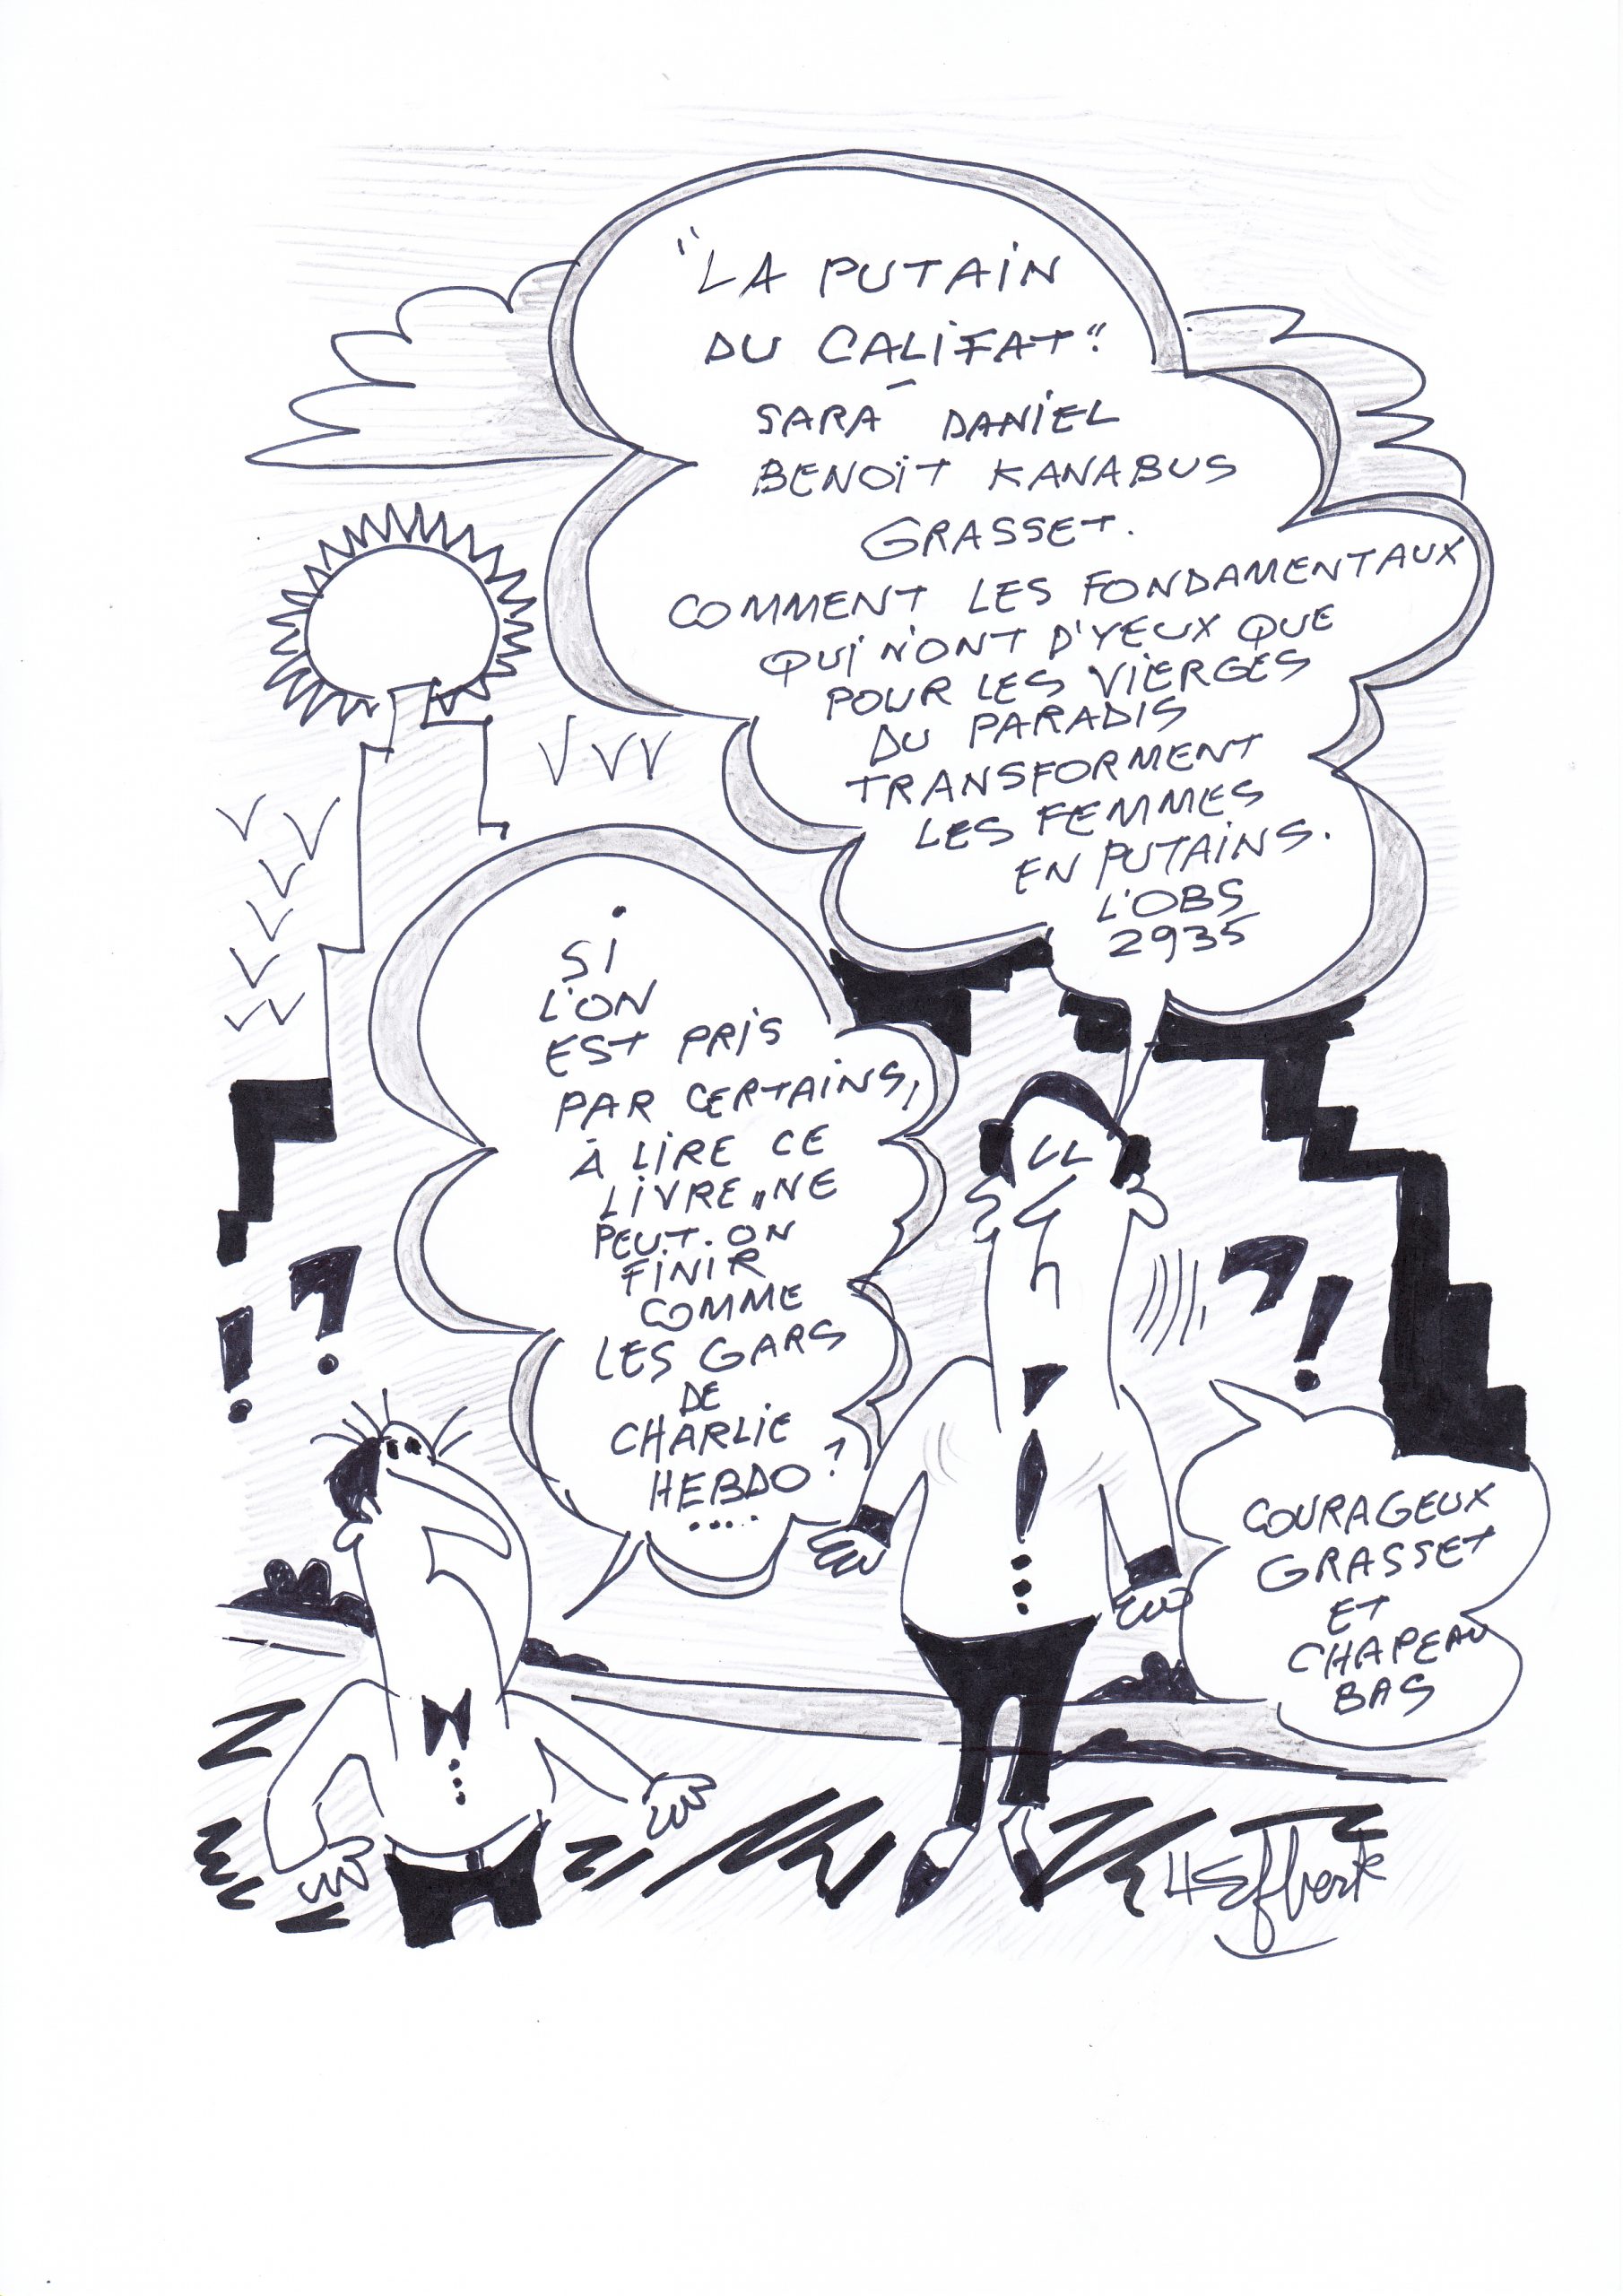 "LA PUTAIN
DU CALIFAT"
-
SARA DANIEL
BENOÏT KANABUS
GRASSET.
COMMENT LES FONDAMENTAUX
QUI N'ONT D'YEUX QUE
POUR LES VIERGES
DU PARADIS
TRANSFORMENT
LES FEMMES
EN PUTAINS.
L'OBS
2935
SI
L'ON
EST PRIS
PAR CERTAINS,
À LIRE CE
LIVRE,, NE
PEUT.ON
FINIR
COMME
LES GARS
DE
CHARLIE
HEBDO?
....
! ?
? !
COURAGEUX
GRASSET
ET
CHAPEAU
BAS